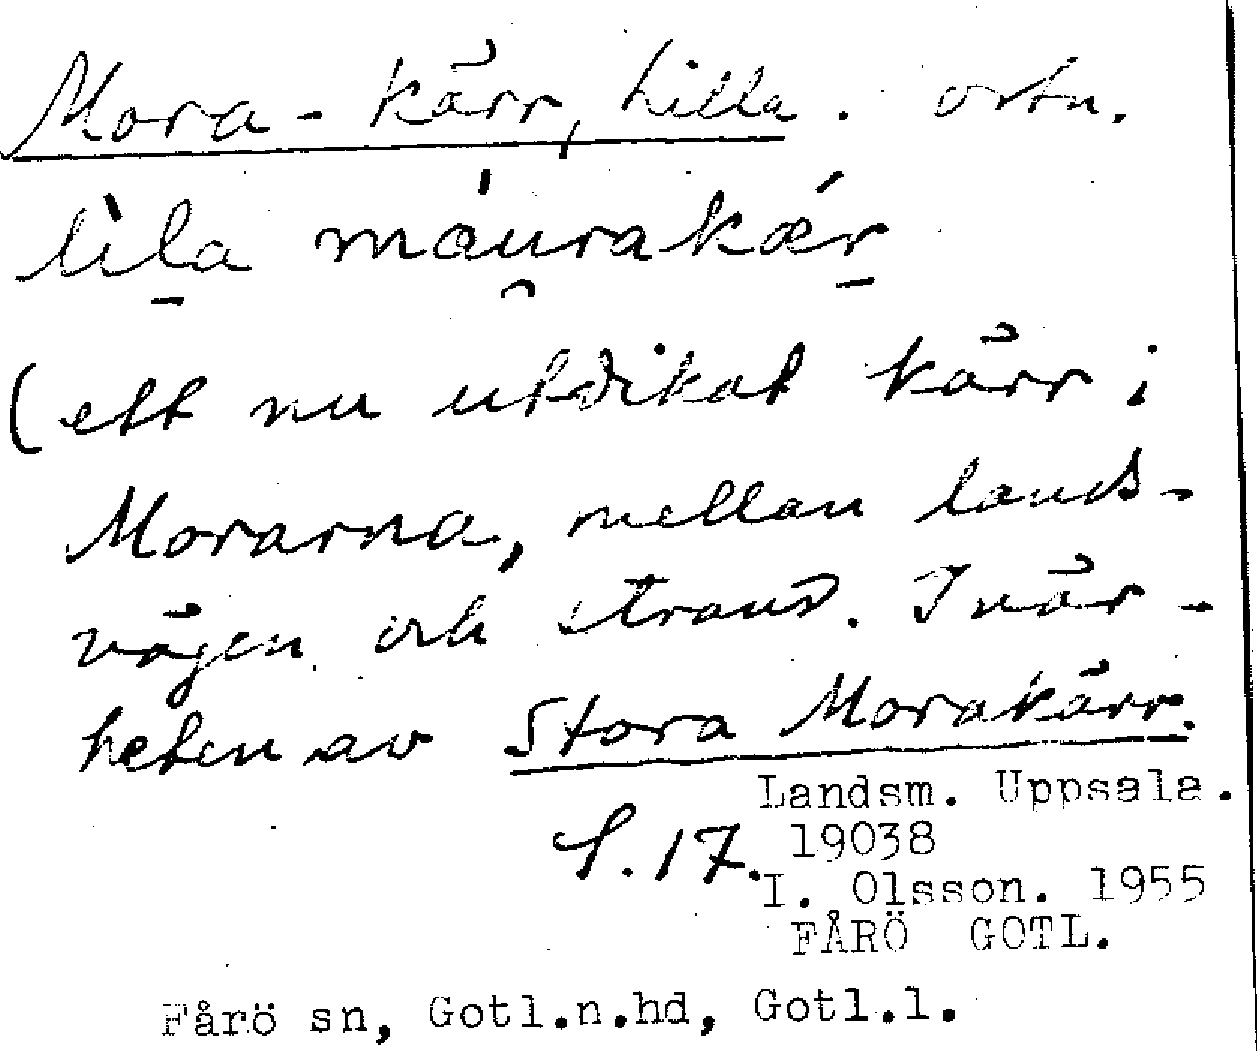 Mora-kärr, Lilla. ortn.
lìla máurakǽr
(ett nu utdikat kärr i
Morarna, mellan lands-
vägen och strand. I när-
heten av Stora Morakärr.
S. 17.
Landsm. Uppsala.
19038
I. Olsson. 1955
FÅRÖ GOTL.
Fårö sn, Gotl.n.hd, Gotl.l.